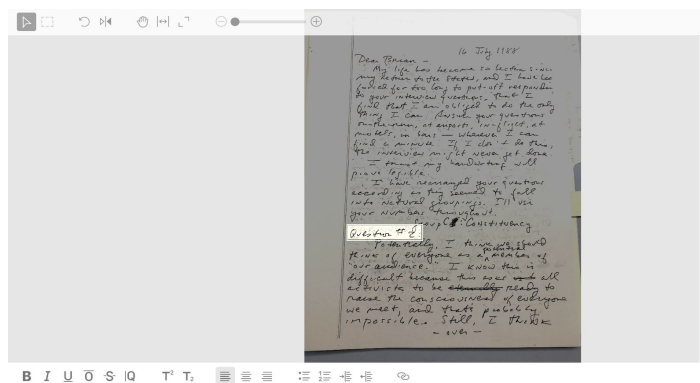 16 July 1988
Dear Brian –
My life has become so hectic since
my return to the States, and I have been
forced for too long to put-off responding
to your interview questions, that I
find that I am obliged to do the only
thing I can. Answer your questions
on-the-run, at airports, in-flight, at
motels, in bars — wherever I can
find a minute. If I don't do this,
the interview might never get done.
I trust my handwriting will
prove legible.
I have rearranged your questions
according as they seemed to fall
into natural groupings. I'll use
your numbers throughout.
Group : Constituency
Question # 2:
Potentially, I think we should
think of everyone as a potential member of
"our audience." I know this is
difficult because this all
activists to be ready to
raise the consciousness of everyone
we meet, and that's probably
impossible. Still, I think
– over –
B I U O S Q T² T₂